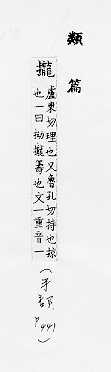 類篇
攏 盧東切理也又魯孔切持也掠
也一曰拗攏籌也文一重音一
(手部 P.441)